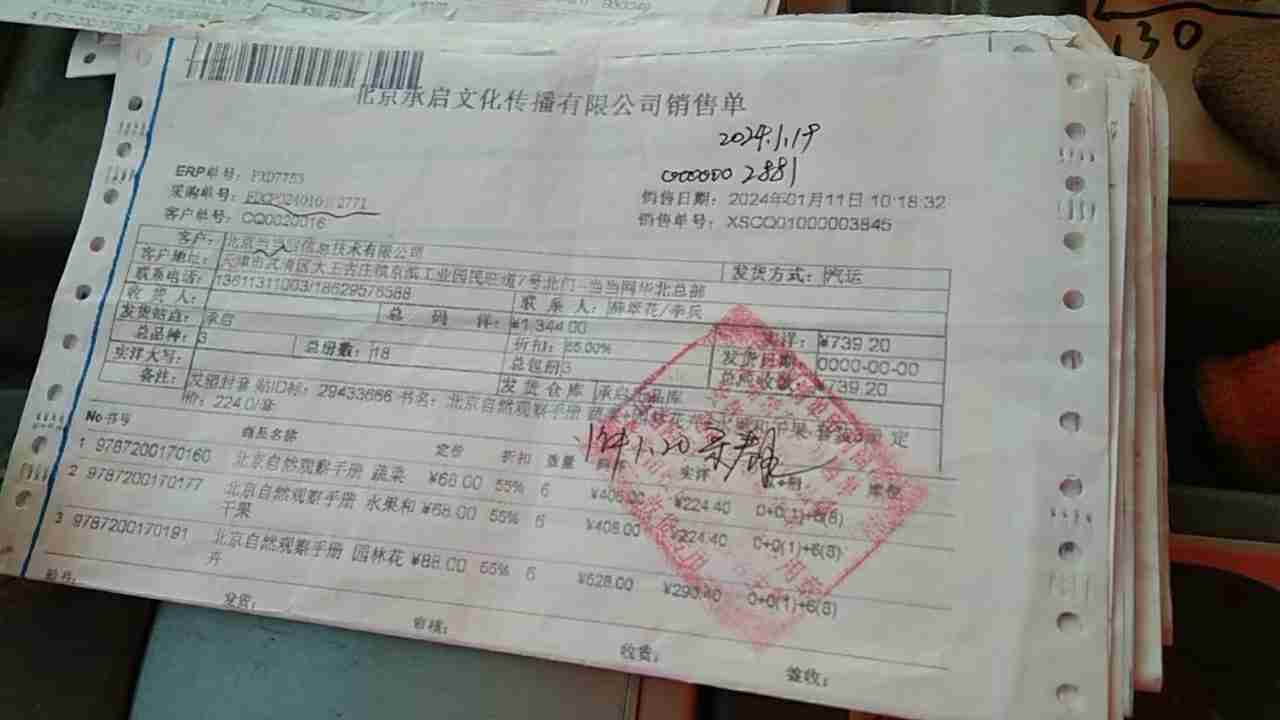 北京承启文化传播有限公司销售单
2024.1.19
0000000 2881
ERP单号: PXD7753
采购单号: 2771
客户单号: CQ0020016
销售日期: 2024年01月11日 10:18:32
销售单号: XSCQ01000003845
客户: 北京当当 信息技术有限公司
发货方式: 汽运
客户地址: 天津市武清区大王古庄镇京滨工业园民旺道7号北门-当当网华北总部
联系电话: 13611311003/18629576588
联 系 人: 薛翠花/李兵
收 货 人:
总 码 洋: ¥1,344.00
实洋: ¥739.20
发货站点: 承启
折扣: 55.00%
发货日期: 0000-00-00
总品种: 3
总册数: 18
总包册3
总应收款: ¥739.20
实洋大写:
发货仓库: 承启 品库
备注: 站ID标: 29433666 书名: 北京自然观察手册 定
价: 224.0/套
No 书号 商品名称 定价 折扣 数量 实洋
1 9787200170160 北京自然观察手册 蔬菜 ¥68.00 55% 6 ¥408.00 ¥224.40 0+0(1)+6(6)
2 9787200170177 北京自然观察手册 水果和 ¥68.00 55% 6 ¥408.00 ¥224.40 0+0(1)+6(6)
干果
3 9787200170191 北京自然观察手册 园林花 ¥88.00 55% 6 ¥528.00 ¥290.40 0+0(1)+6(6)
卉
发货: 审核: 收货: 签收:
130